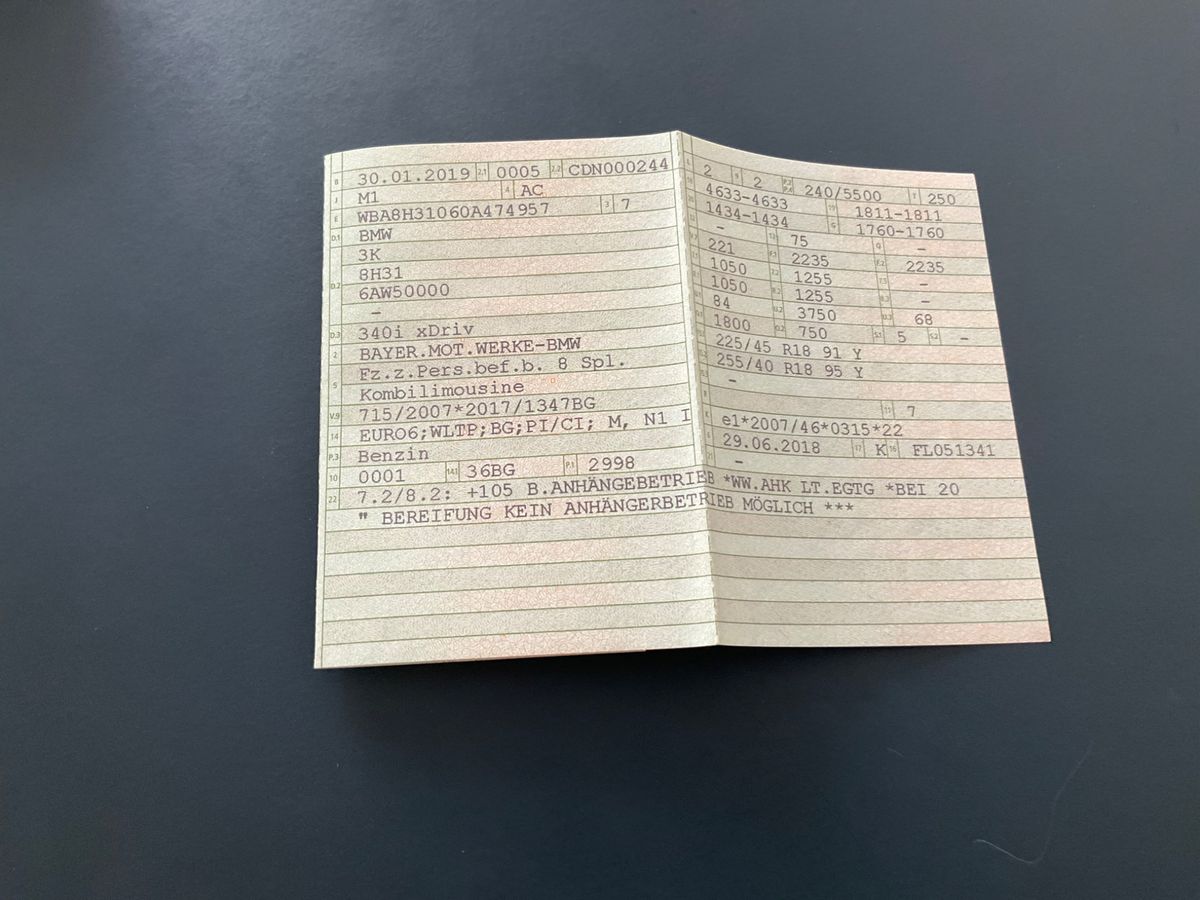 B 30.01.2019 2.1 0005 2.2 CDN000244
J M1 4 AC
E WBA8H31060A474957 3 7
D.1 BMW
3K
D.2 8H31
6AW50000
–
D.3 340i xDriv
2 BAYER.MOT.WERKE-BMW
Fz.z.Pers.bef.b. 8 Spl.
5 Kombilimousine
V.9 715/2007*2017/1347BG
14 EURO6;WLTP;BG;PI/CI; M, N1 I
P.3 Benzin
10 0001 14.1 36BG P.1 2998
22 7.2/8.2: +105 B.ANHÄNGEBETRIEB *WW.AHK LT.EGTG *BEI 20
" BEREIFUNG KEIN ANHÄNGERBETRIEB MÖGLICH ***
L 2 9 2 P.2 P.4 240/5500 T 250
18 4633-4633 19 1811-1811
20 1434-1434 G 1760-1760
– 13 75 Q –
221 F.1 2235 F.2 2235
1050 7.2 1255 –
1050 8.2 1255 –
84 U.2 3750 U.3 68
1800 O.2 750 S.1 5 S.2 –
225/45 R18 91 Y
255/40 R18 95 Y
–
R 11 7
K e1*2007/46*0315*22
6 29.06.2018 17 K 16 FL051341
21 –